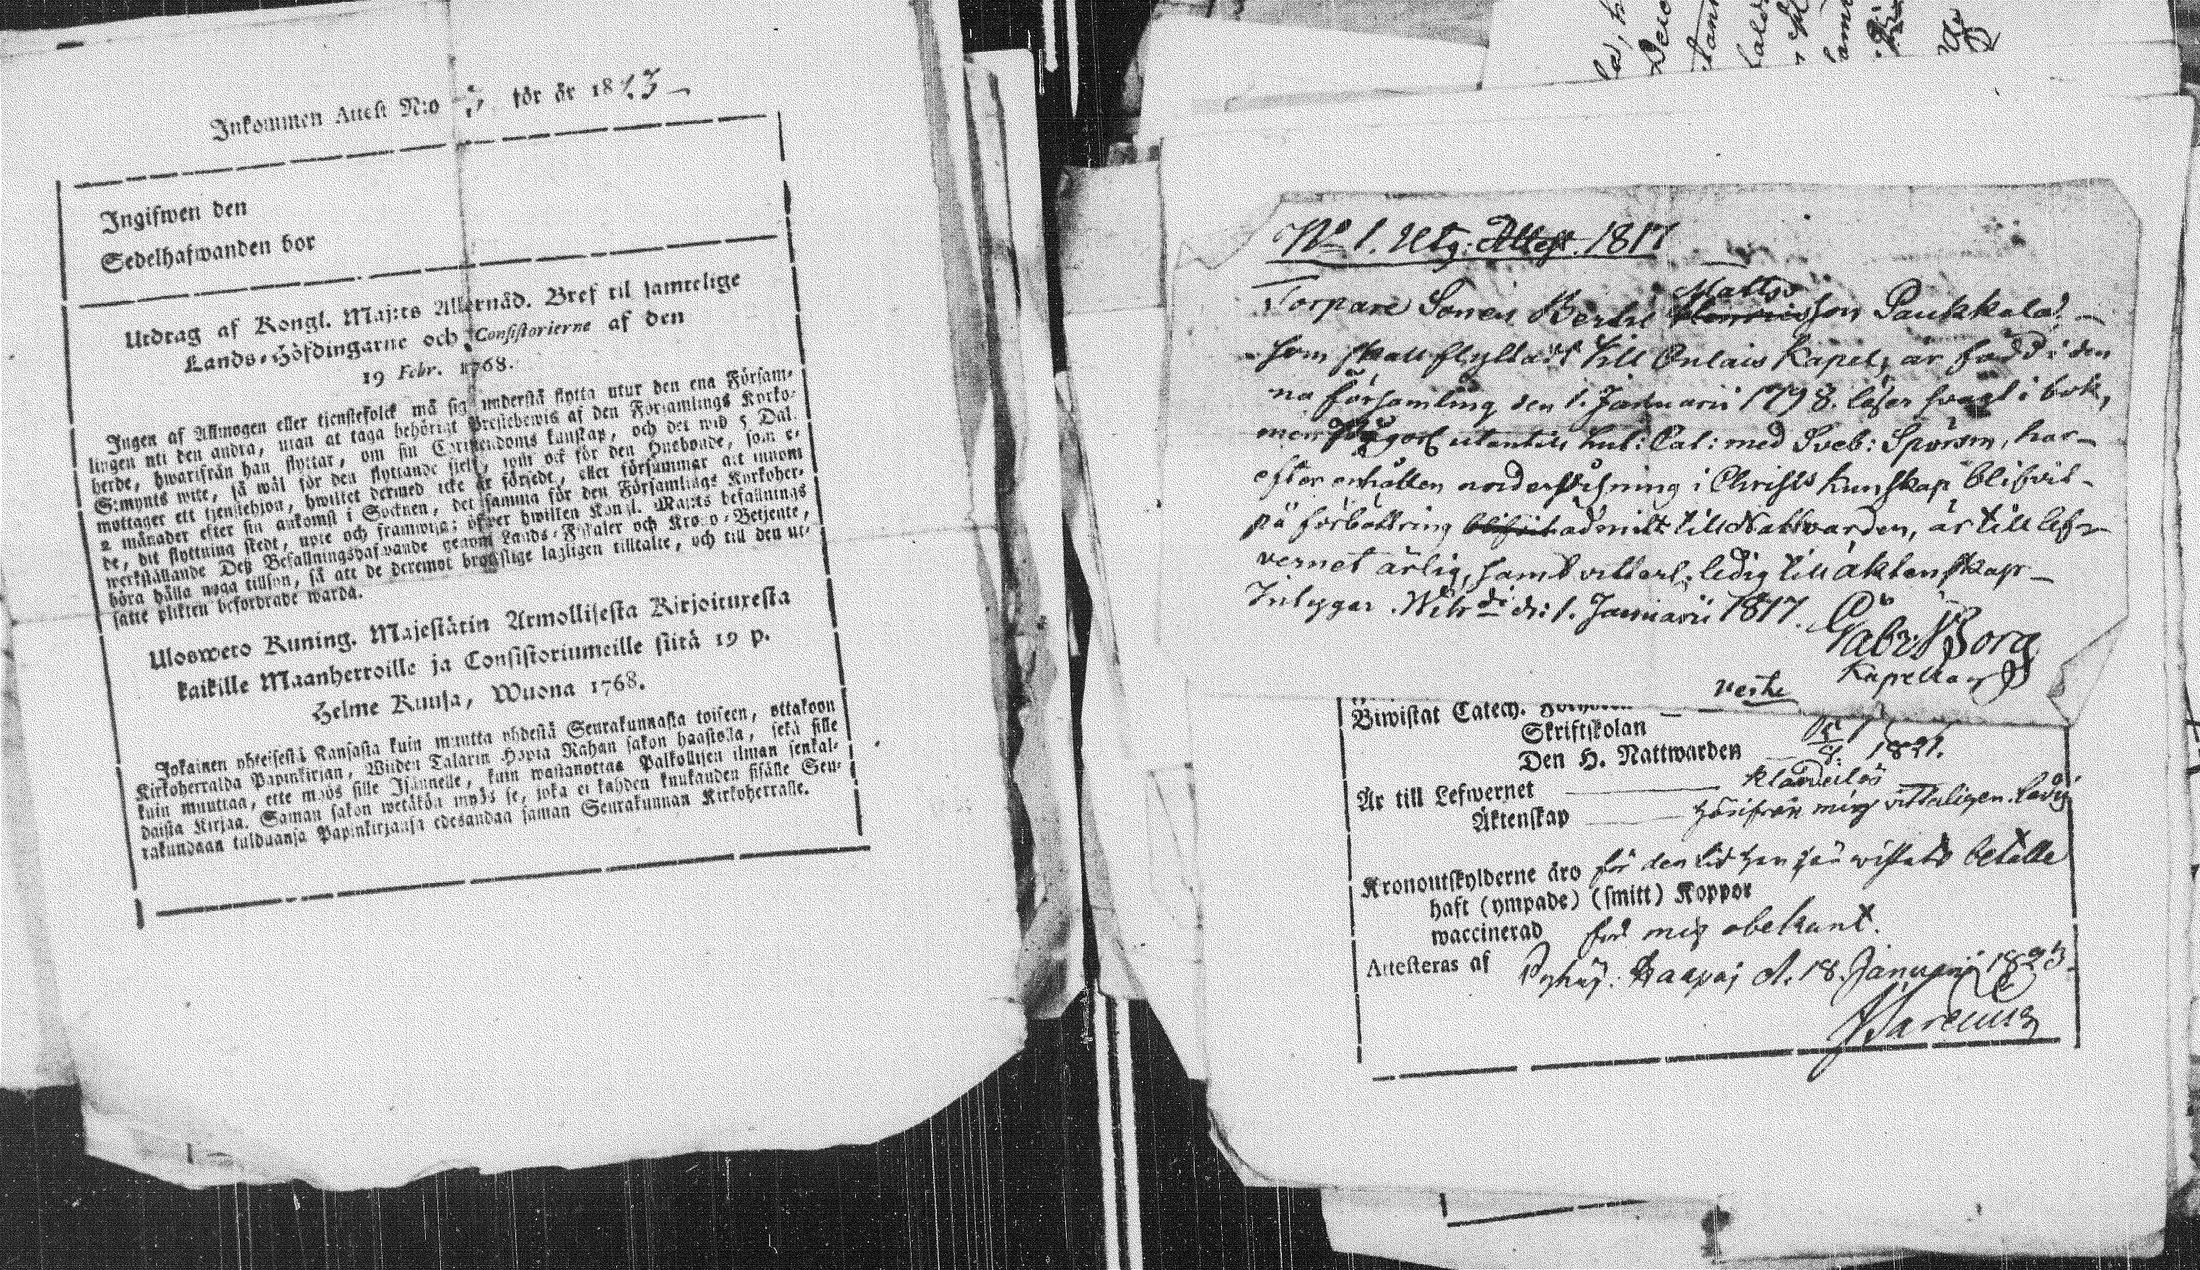 Inkommen Attest N:o 5 för år 1823
Ingifwen den
Sedelhafwanden bor
Utdrag af Kongl. Maj:ts Allernåd. Bref til samtelige
Lands-Höfdingarne och Consistorierne af den
19 Febr. 1768.
Ingen af Allmogen eller tienstefolck må sig understå flytta utur den ena Försam-
lingen uti den andra, utan at taga behörigt Prestebewis af den Församlings Kyrko-
herde, hwarifrån han flyttar, om sin Christendoms kunskap, och det wid 5 Dal.
S:mynts wite, så wäl för den flyttande sielf, som ock för den Husbonde, som e-
mottager ett tjenstehjon, hwilket dermed icke är försedt, eller försummar att innom
2 månader efter sin ankomst i Socknen, det samma för den Församlings Kyrkoher-
de, dit flyttning skedt, upte och framwisa; öfwer hwilken Kongl. Maj:ts befallnings
werkställande Deß Befallningshafwande genom Lands-Fiskaler och Krono-Betjente,
böra hålla noga tillsyn, så att de deremot brottslige lagligen tilltalte, och till den ut-
satte plikten befordrade warda.
Uloswero Kuning. Majestätin Armollisesta Kirjoituxesta
kaikille Maanherroille ja Consistoriumeille siitä 19 p.
Helme Kuusa, Wuona 1768.
Jokainen yhteisestä Kansasta kuin muutta yhdestä Seurakunnasta toiseen, ottakoon
Kirkoherralda Papinkirjan, Wiiden Talarin Hopia Rahan sakon haastolla, sekä sille
kuin muuttaa, ette myös sille Isännelle, kuin wastanottaa Palkollisen ilman senkal-
daista Kirjaa. Saman sakon wetäkön myös se, joka ei kahden kuukauden sisälle Seu-
rakundaan tulduansa Papinkirjansa edesandaa saman Seurakunnan Kirkoherralle.
No 1. Utg: Attest. 1817
Mattss
Torpare Sonen Bertil Henricsson Paukkala,
som skall flytta till Oulais Kapel, är född i den
na församling den 1. Januarii 1798. läser svagt i bok,
men någorl utantill hul: Cat: med Sveb: Spörsm, har
efter erhållen undervisning i Christs kunskap blifvit
på förbättring blifvit admitt till Nattvarden, är till lef-
vernet ärlig, samt vitterl: ledig till äktenskap
Intygar. Wihdi d: 1. Januarii 1817. Gabr: Borg
Kapellan
Biwistat Catech. Förhören
Skriftskolan
Den H. Nattwarden 1821.
Är till Lefwernet klanderlös
Äktenskap härifrån mig vitterligen ledig
Kronoutskylderne äro för den tid han här wistats betalte
haft (ympade) (smitt) Koppor
waccinerad för mig obekant.
Attesteras af Pyhäj. Haapaj d. 18. Januarii 1823.